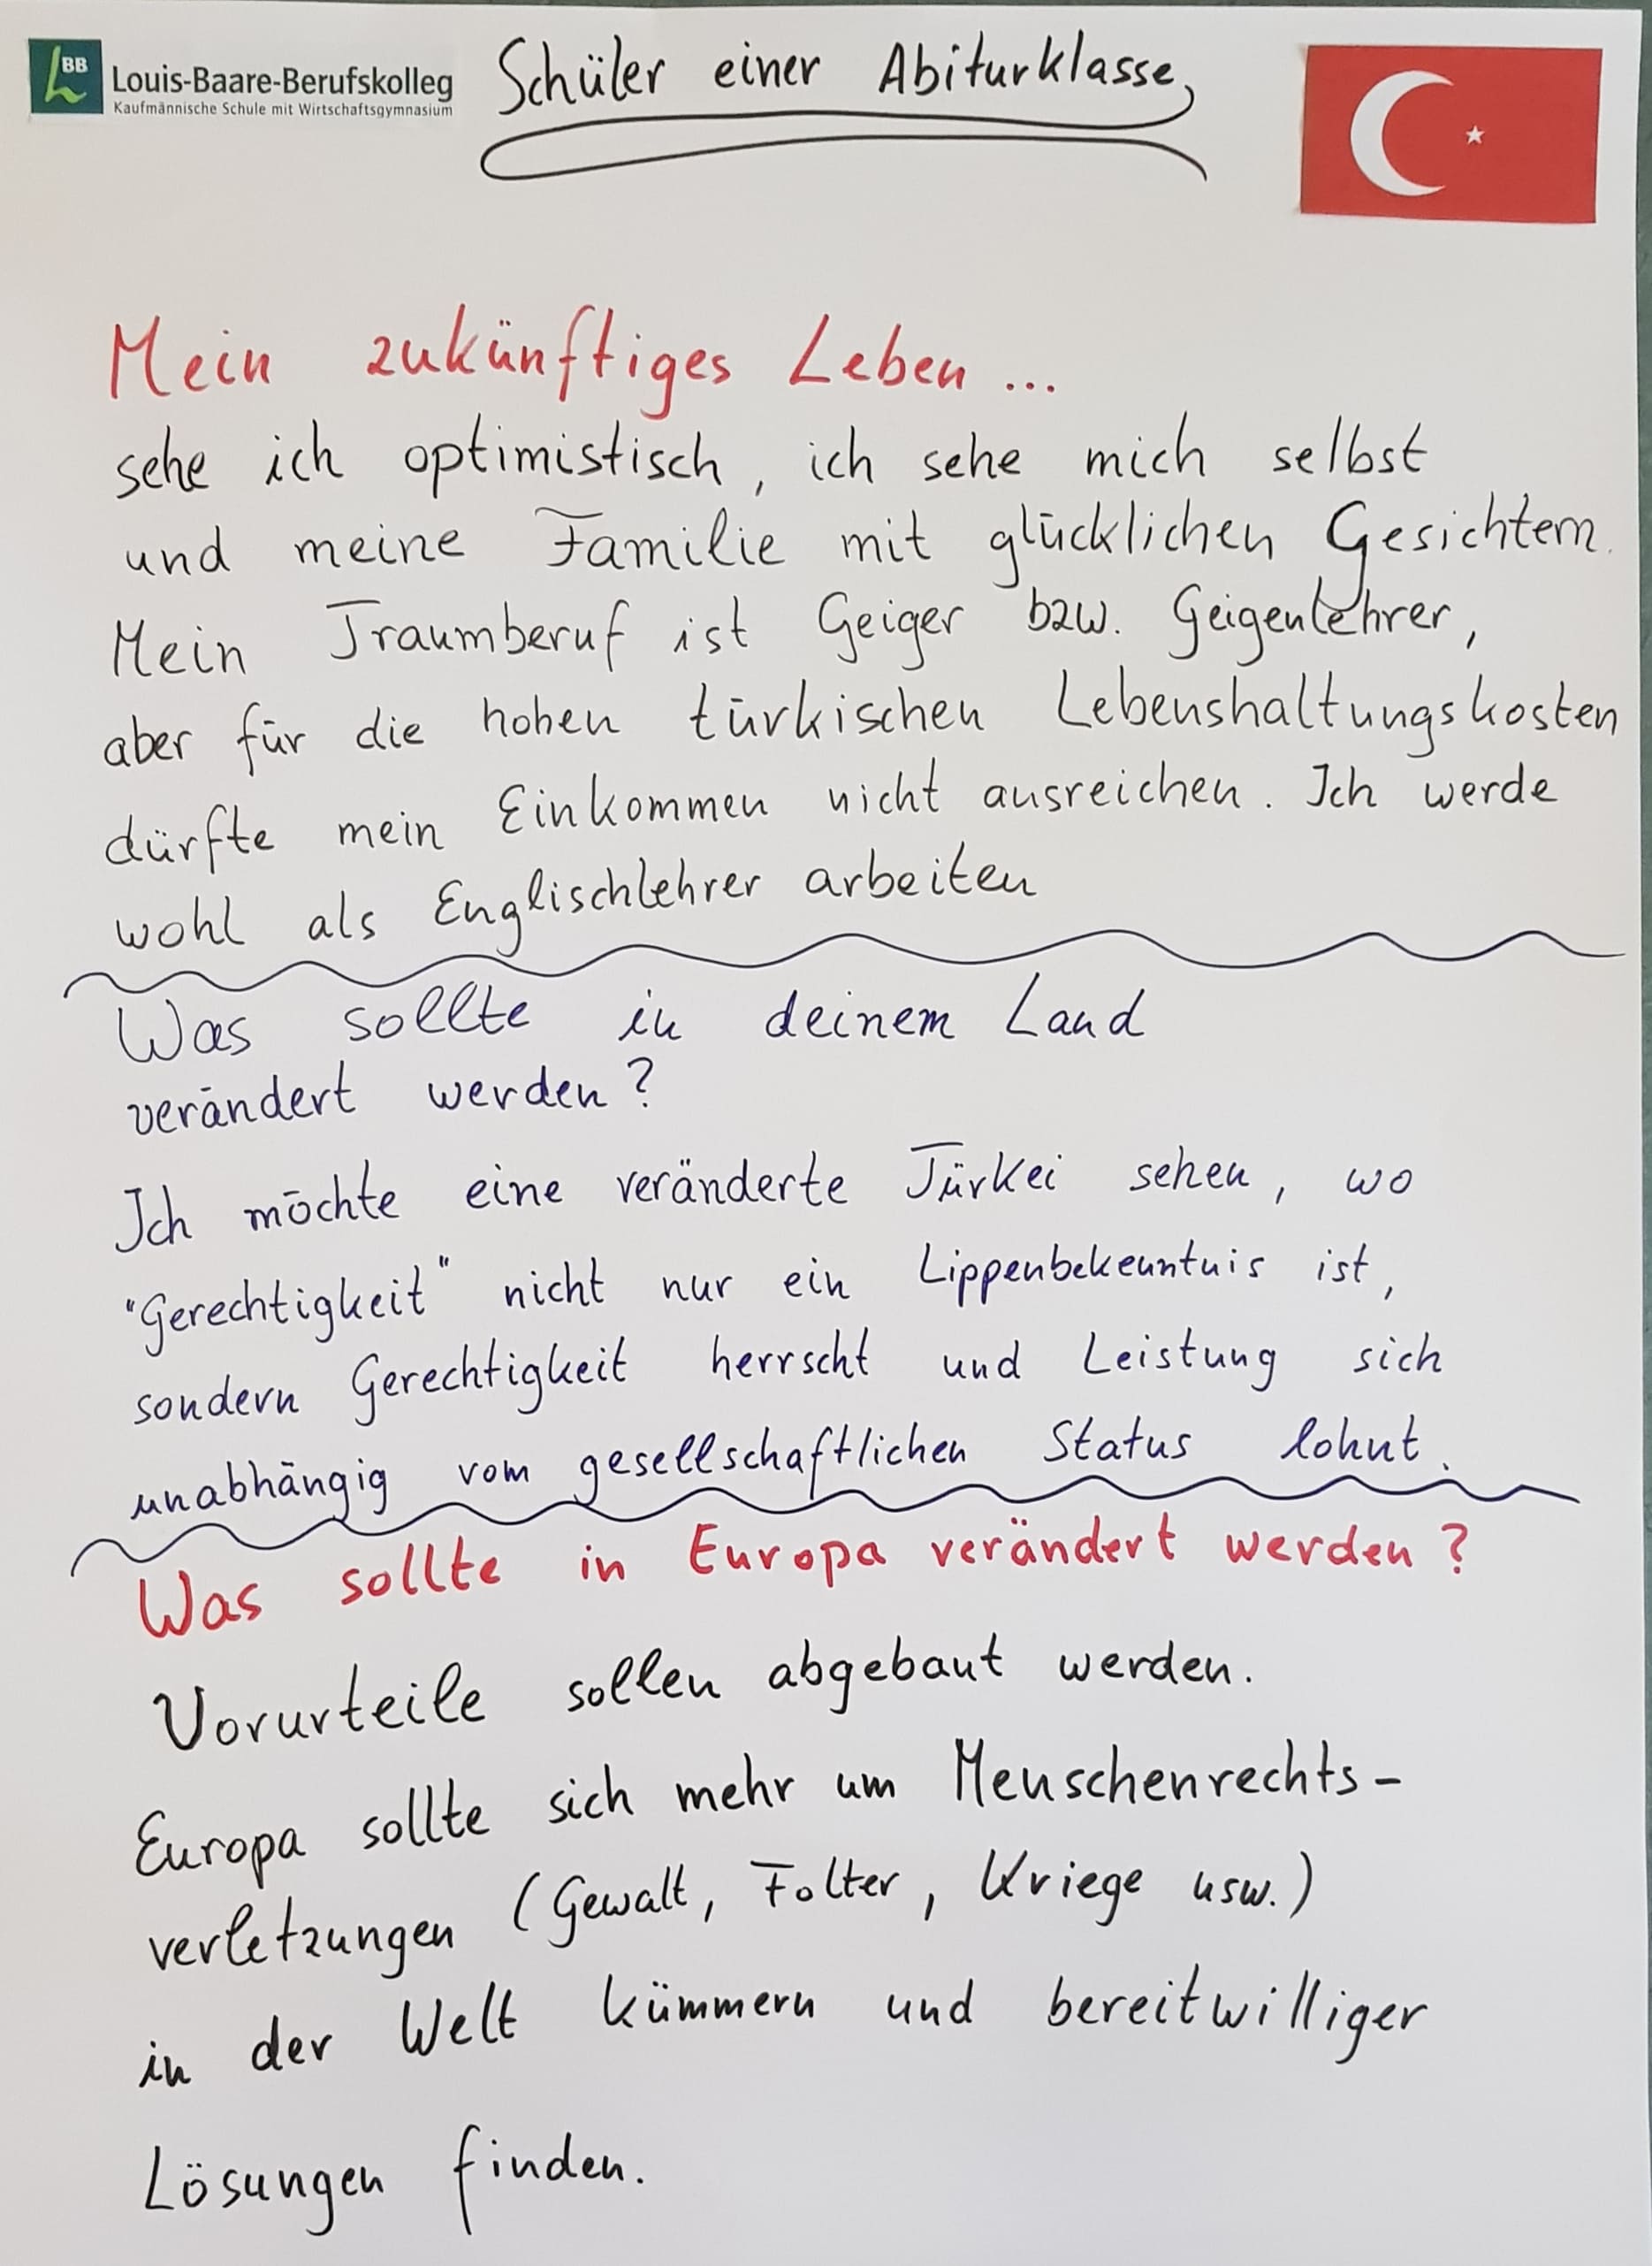 BB
Louis-Baare-Berufskolleg
Kaufmännische Schule mit Wirtschaftsgymnasium
Schüler einer Abiturklasse,
Mein zukünftiges Leben ...
sehe ich optimistisch, ich sehe mich selbst
und meine Familie mit glücklichen Gesichtern.
Mein Traumberuf ist Geiger bzw. Geigenlehrer,
aber für die hohen türkischen Lebenshaltungskosten
dürfte mein Einkommen nicht ausreichen. Ich werde
wohl als Englischlehrer arbeiten
Was sollte in deinem Land
verändert werden?
Ich möchte eine veränderte Türkei sehen, wo
"Gerechtigkeit" nicht nur ein Lippenbekenntnis ist,
sondern Gerechtigkeit herrscht und Leistung sich
unabhängig vom gesellschaftlichen Status lohnt.
Was sollte in Europa verändert werden?
Vorurteile sollen abgebaut werden.
Europa sollte sich mehr um Menschenrechts-
verletzungen (Gewalt, Folter, Kriege usw.)
in der Welt kümmern und bereitwilliger
Lösungen finden.